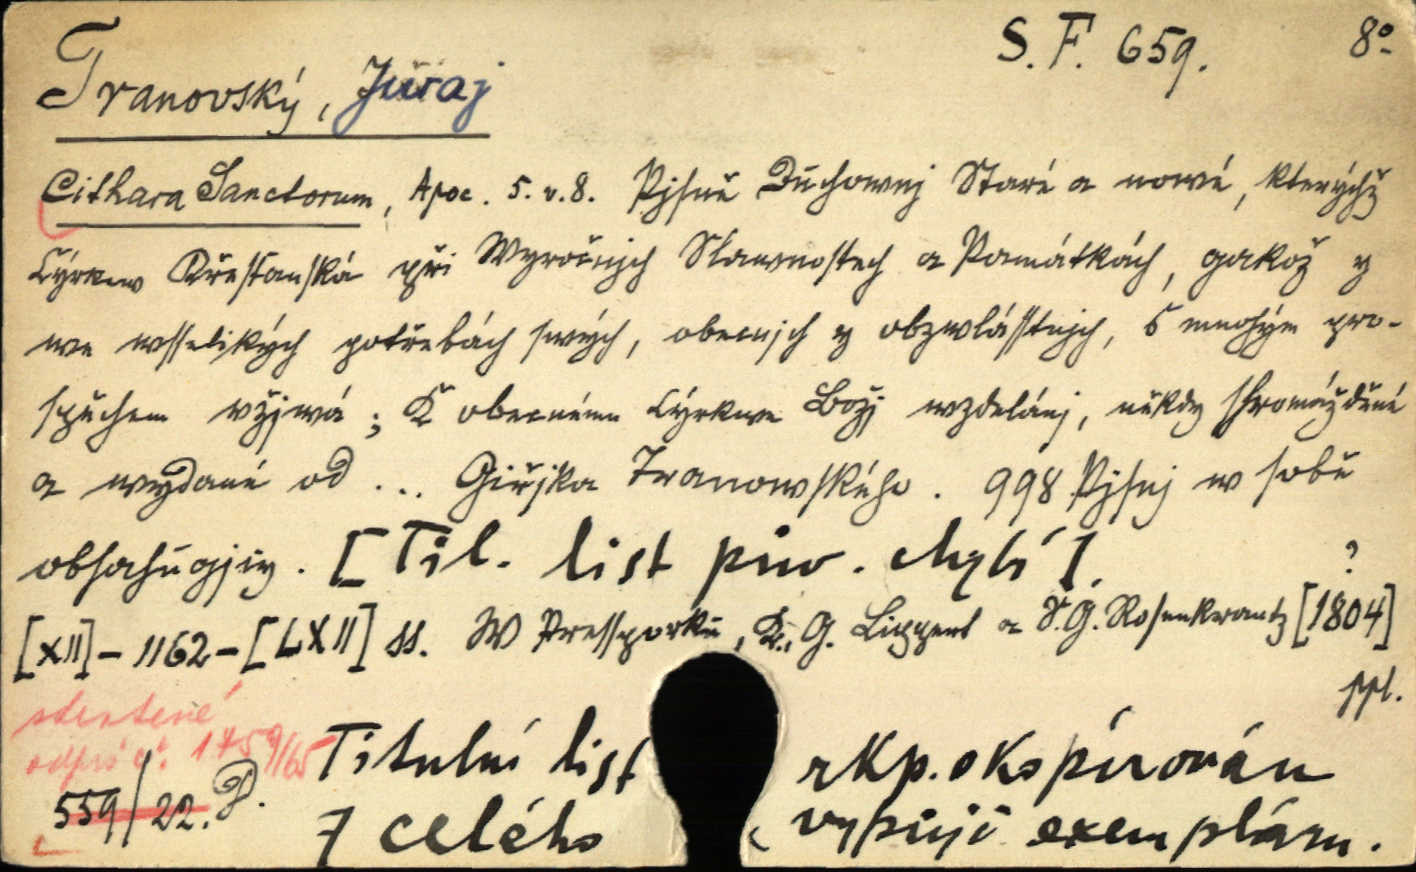 S. F. 659. 8º
Tranovský, Juraj
Cithara Sanctorum, Apoc. 5. v. 8. Pjsně Duchownj Staré a nowé, kterýchž
Cýrkew Křesťanská při Wyročnjch Slawnostech a Památkách, gakož y
we wsselikých potřebách swých, obecnjch y obzwlásstnjch, s mnohým pro-
spěchem vžjwá; K obecnému Cýrkwe Božj wzdelánj, někdy shromážděné
a wydané od ... Giřjka Tranowského. 998 Pjsnj w sobě
obsahugjcy. [Tit. list pův. chybí].
[XII] - 1162 - [LXII] ss. W Pressporku, K. G. Lippert a S. G. Rosenkrantz [1804]?
ppl.
odpis č. 1759/65
559/22. D.
Titulní list rkp. okopírován
z celého vypůjč. exempláru.